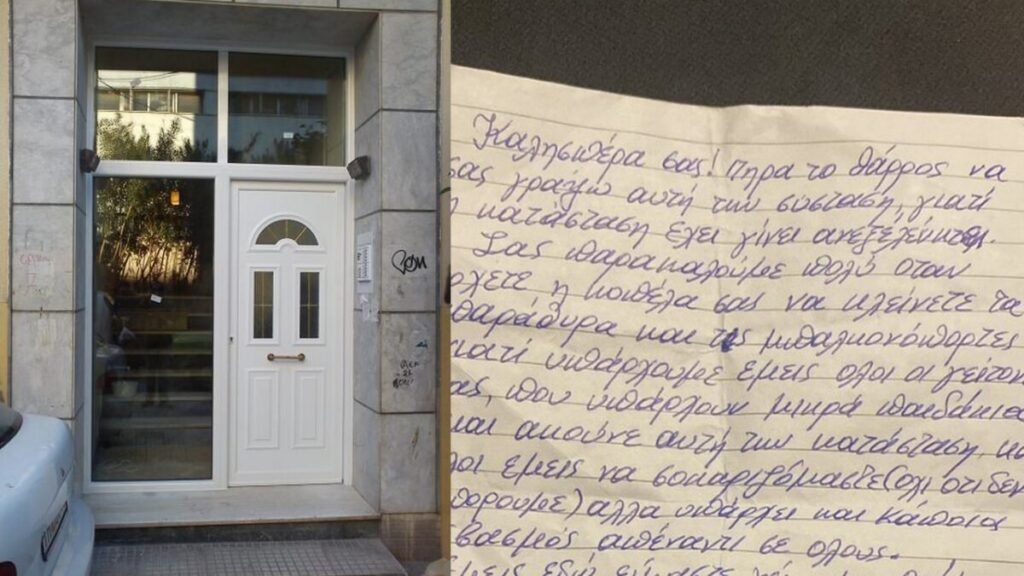 Καλησπέρα σας! πηρα το θάρρος να
σας γράψω αυτή την σύσταση, γιατί
η κατάσταση έχει γίνει ανεξέλεγκτη.
Σας παρακαλούμε πολύ οταν
ρχετε η κοπέλα σας να κλείνετε τα
παράθυρα και τις μπαλκονόπορτες
γιατί υπάρχουμε εμεις ολοι οι γείτον
ας, που υπάρχουν μικρά παιδάκια
και ακούνε αυτή την κατάσταση κα
λοι εμεις να σοκαριζόμαστε (οχι οτι δεν
πορουμε) αλλα υπάρχει και κάποιο
βασμός απέναντι σε ολους.